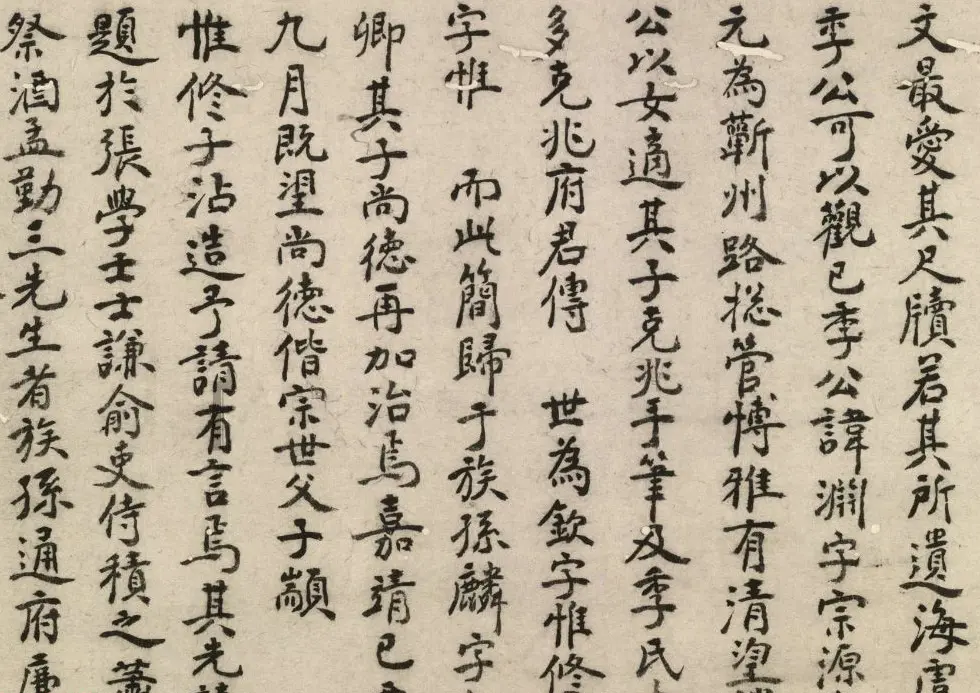 文最愛其尺牘若其所遺海
季公可以觀已季公諱淵字宗源
元為蘄州路捴管愽雅有清望
公以女適其子克兆手筆及季氏
多克兆府君傳 世為欽字惟修
字惟 而此簡歸于族孫麟字
卿其子尚德再加治焉嘉靖已
九月既望尚德偕宗世父子顓
惟修子沾造予請有言焉其先
題於張學士士謙俞吏侍積之蕭
祭酒孟勤三先生者族孫通府廉